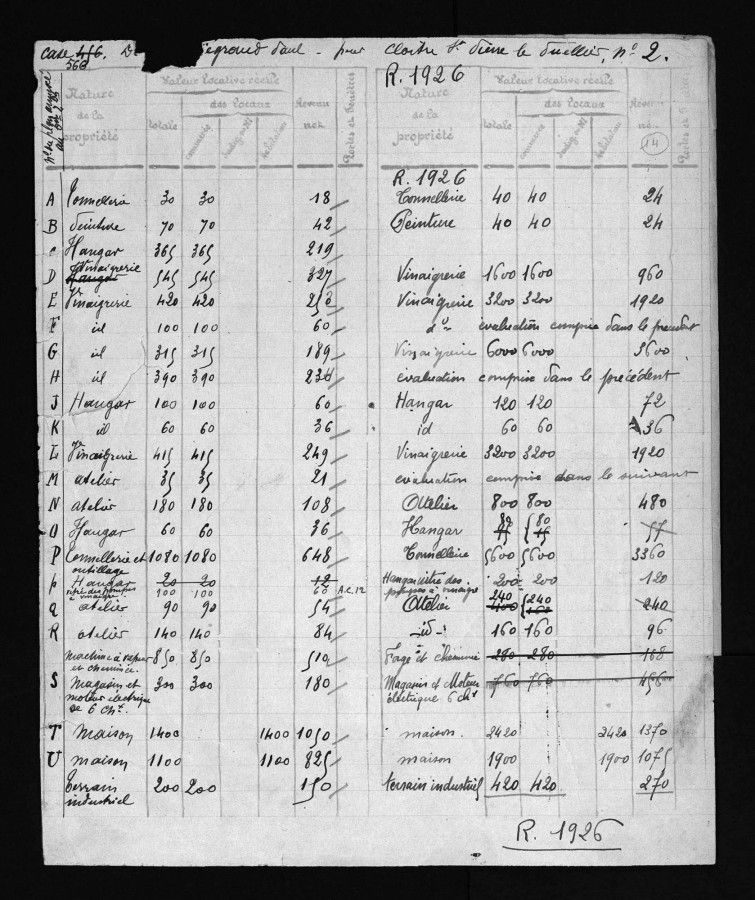 Case 416. D égroud Paul - pour Cloitre St Pierre le Puellier, n° 2.
568
R. 1926
Nature de la propriété
Valeur locative réelle des locaux
totale
commerce
industriel
habitation
Revenu net
Portes et Fenêtres
Nature de la propriété
Valeur locative réelle des locaux
totale
commerce
industriel
habitation
Revenu net
14
Portes et Fenêtres
R. 1926
A Tonnellerie 30 30 18 Tonnellerie 40 40 24
B Peinture 70 70 42 Peinture 40 40 24
C Hangar 365 365 219
D Vinaigrerie Hangar 545 545 327 Vinaigrerie 1600 1600 960
E Vinaigrerie 420 420 252 Vinaigrerie 3200 3200 1920
F id 100 100 60 d° évaluation comprise dans le précédent
G id 315 315 189 Vinaigrerie 6000 6000 3600
H id 390 390 234 évaluation comprise dans le précédent
J Hangar 100 100 60 Hangar 120 120 72
K id 60 60 36 id 60 60 36
L Vinaigrerie 415 415 249 Vinaigrerie 3200 3200 1920
M atelier 35 35 21 évaluation comprise dans le suivant
N atelier 180 180 108 Atelier 800 800 480
O Hangar 60 60 36 Hangar 80 80 57
P Tonnellerie et outillage 1080 1080 648 Tonnellerie 5600 5600 3360
p Hangar 20 20 12
vitré des pompes à vinaigre 100 100 60 A.C. 12 Hangar vitré des pompes à vinaigre 200 200 120
Q atelier 90 90 54 Atelier 240 400 240 400 240
R atelier 140 140 84 id 160 160 96
Machine à vapeur et cheminée 850 850 510 et cheminée 280 280 168
S Magasin et moteur électrique de 6 ch. 300 300 180 Magasin et Moteur électrique 6 ch 760 760 456
T Maison 1400 1400 1050 maison 2420 2420 1370
U maison 1100 1100 825 maison 1900 1900 1075
terrain industriel 200 200 150 terrain industriel 420 420 270
R. 1926